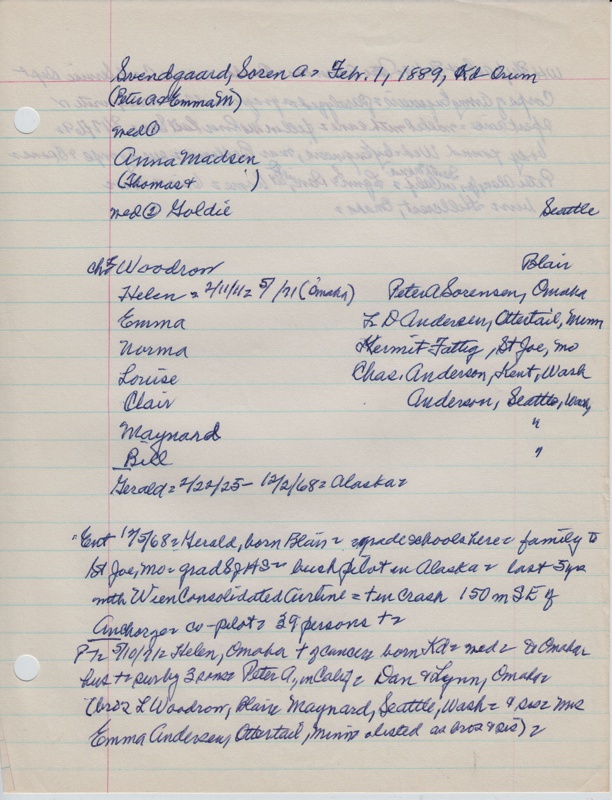 Svendgaard, Soren A = Feb. 1, 1889, Kd - Orum
(Peter A & Emma M)
med ①
Anna Madsen
(Thomas & )
med ② Goldie Seattle
ch: Woodrow Blair
Helen = 2/11/11 = 5/71 (Omaha) Peter A Sorensen, Omaha
Emma L D Andersen, Ottertail, Minn
Norma Kermit Fattig, St Joe, Mo
Louise Chas. Anderson, Kent, Wash
Clair Anderson, Seattle, Wash
Maynard "
Bill "
Gerald = 2/22/25 - 12/2/68 = Alaska =
"Ent 12/5/68 = Gerald, born Blair = grade schools here = family to
St Joe, Mo = grad HS = bush pilot in Alaska = last 5 yrs
with Wien Consolidated Airline = + in crash 150 m SE of
Anchorge = co-pilot = 39 persons + =
P-T = 5/10/71 = Helen, Omaha + of cancer born Kd = med = to Omaha
hus + = surv by 3 sons = Peter A, in Calif = Dan & Lynn, Omaha =
(bros L Woodrow, Blair Maynard, Seattle, Wash = & sis = Mrs
Emma Andersen, Ottertail, Minn = listed as bros & sis) =